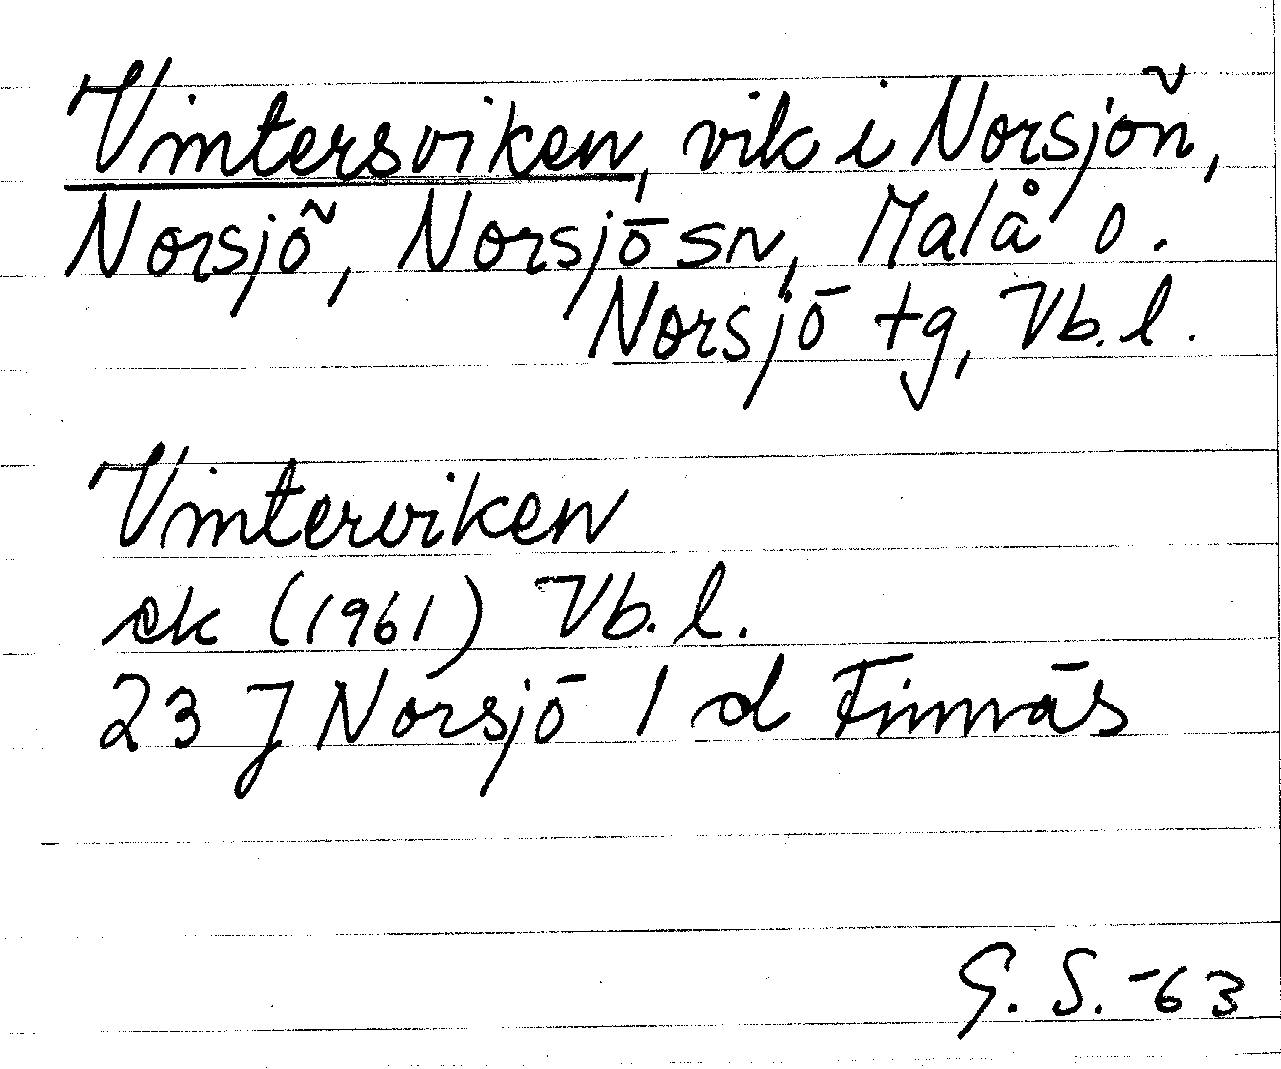 Vintersviken, vik i Norsjön,
Norsjö, Norsjö sn, Malå o.
Norsjö tg, Vb. l.
Vinterviken
ek (1961) Vb. l.
23 J Norsjö 1 d Finnäs
G. S. -63